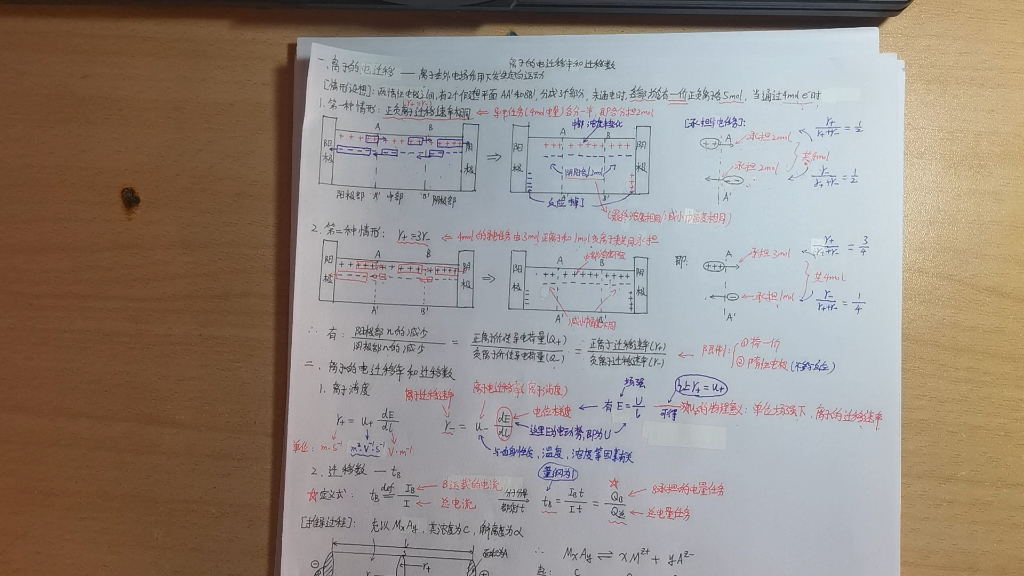 离子的电迁移率和迁移数
一、离子的电迁移 —— 离子在外电场作用下发生定向运动
[情形设想]: 两惰性电极之间, 有2个假想平面AA'和BB', 分成3个部分, 未通电时, 各部均含有一价正负离子各5mol, 当通过4mol e⁻时
1. 第一种情形: 正负离子迁移速率相同 ← 导电任务(4mol电量)各分一半, 即各分担2mol
阳极
A
B
阴极
阳极部
A'
中部
B'
阴极部
⇒
中部浓度不变化
阳极
A
B
阴极
A'
B'
反应掉了
[承担导电任务]:
A
承担2mol
承担2mol
A'
共4mol
r₊/(r₊+r₋) = 1/2
r₋/(r₊+r₋) = 1/2
2. 第二种情形: r₊=3r₋ ← 4mol的导电任务由3mol正离子和1mol负离子共同承担
阳极
A
B
阴极
A'
B'
⇒
阳极
A
B
阴极
A'
B'
即:
A
承担3mol
承担1mol
A'
共4mol
r₊/(r₊+r₋) = 3/4
r₋/(r₊+r₋) = 1/4
∴ 有: 阳极部n的减少/阴极部n的减少 = 正离子所传导电荷量(Q₊)/负离子所传导电荷量(Q₋) = 正离子迁移速率(r₊)/负离子迁移速率(r₋) ← 限制: ①都一价 ②惰性电极(不参与反应)
二、离子的电迁移率和迁移数
1. 离子淌度
离子迁移速率
离子电迁移率(离子淌度)
场强
r₊ = u₊ dE/dl
r₋ = u₋ dE/dl
电位梯度
这里E为电动势, 即为U
有 E = U/l
可得
单位: m·s⁻¹ m²·V⁻¹·s⁻¹ V·m⁻¹
与本身性质, 温度, 浓度等因素有关
2. 迁移数 — t_B
☆定义式: t_B def= I_B/I
B运载的电流
总电流
分子分母都乘t
量纲为1
t_B = I_B t/I t = Q_B/Q总
B承担的电量任务
总电量任务
[推导过程]: 先以 MxAy, 其浓度为C, 解离度为α
∴ MxAy ⇌ xM²⁺ + yA²⁻
r₊